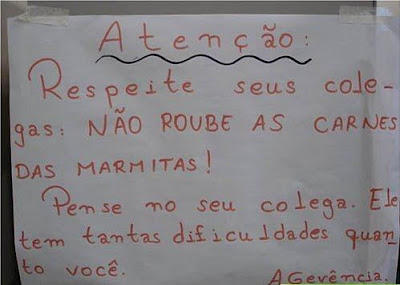 Atenção:
Respeite seus cole-
gas: NÃO ROUBE AS CARNES
DAS MARMITAS!
Pense no seu colega. Ele
tem tantas dificuldades quan
to você.
A Gerência.